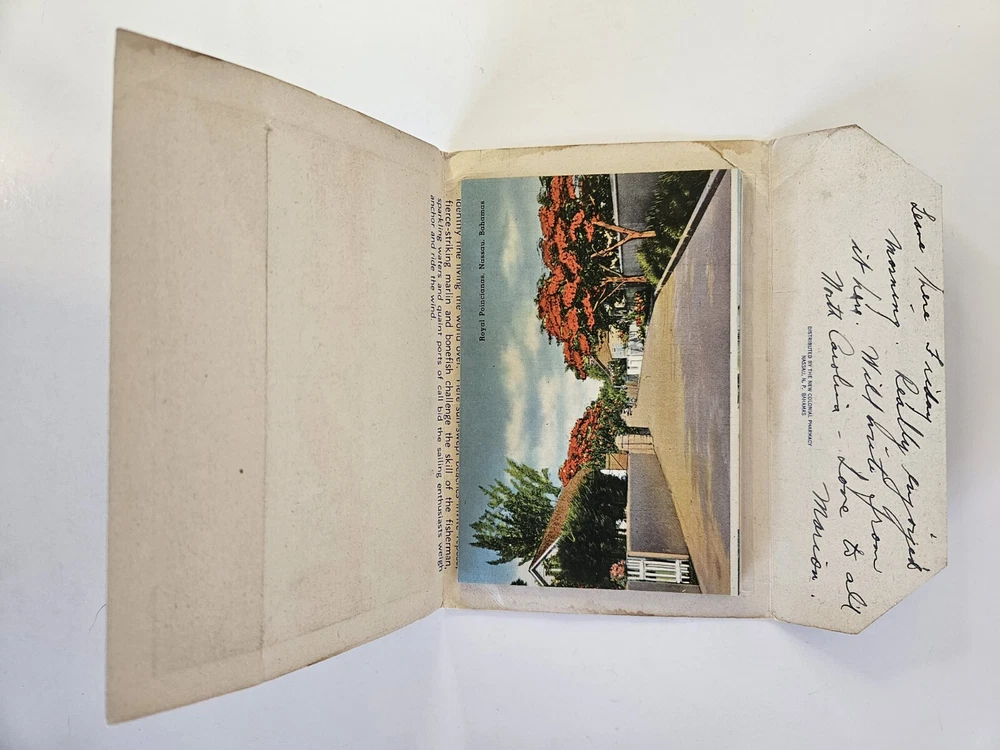 Leave here Friday
morning. Really enjoyed
it here. Will write from
North Carolina - Love to all
Marion.
DISTRIBUTED BY THE NEW COLONIAL PHARMACY
NASSAU, N. P., BAHAMAS
Royal Poincianas, Nassau, Bahamas
identify fine living the world over. Here sun-swept beaches invite repose,
fierce-striking marlin and bonefish challenge the skill of the fisherman,
sparkling waters and quaint ports of call bid the sailing enthusiasts weigh
anchor and ride the wind.